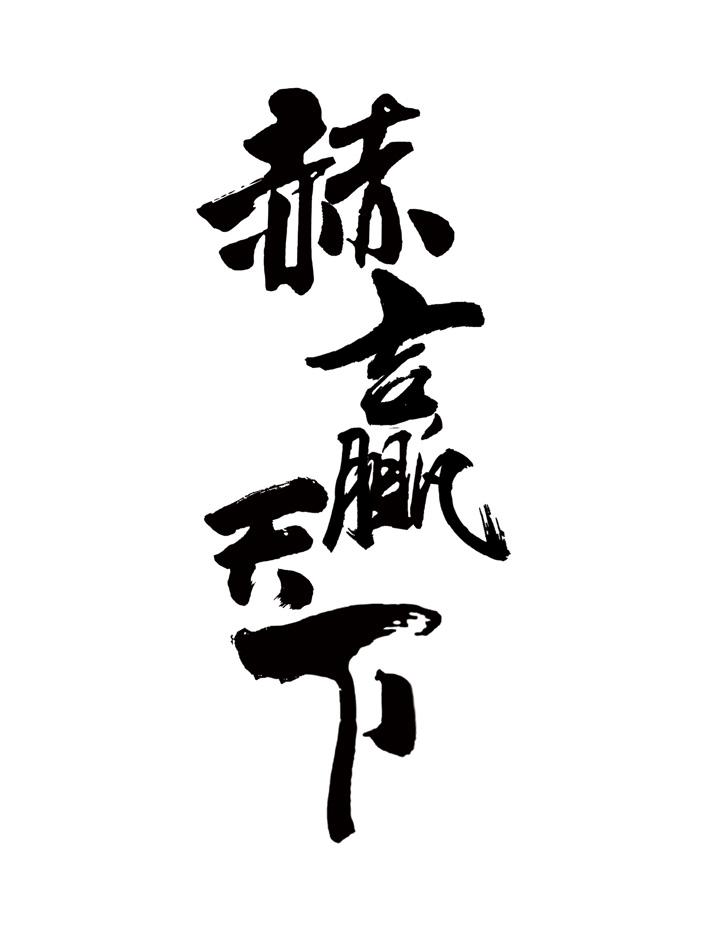 赫赢天下